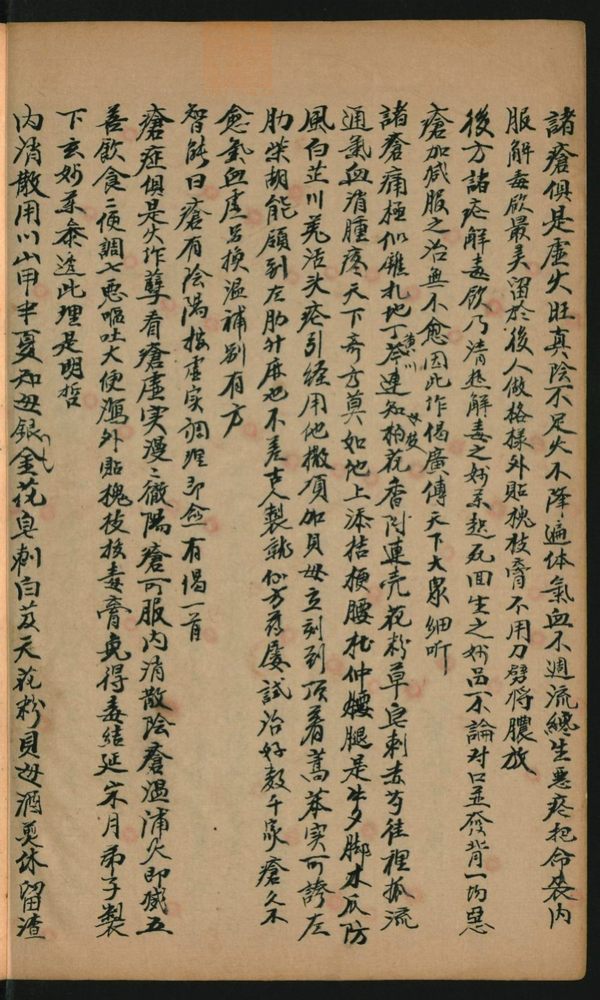 諸瘡俱是虛火旺真陰不足火不降遍体氣血不週流總生惡疮把命喪內
服解毒飲最美留於後人做格樣外貼槐枝膏不用刀劈將膿放
後方諸疮解毒飲乃清熱解毒之妙藥起死回生之妙品不論对口並發背一切惡
瘡加减服之治無不愈因此作偈廣傳天下大衆細听
諸瘡痛極似錐扎地丁芩連知柏花香附連壳花粉草皂刺赤芍往裡抓流
通氣血消腫疼天下奇方莫如他上添桔梗腰杜仲腿是牛夕脚木瓜防
風白芷川羌活头疮引経用他撒項加貝母立刻到頂着蒿本实可誇左
肋柴胡能顧到右肋升麻也不差古人製就仙方藥屢試治好数千家瘡久不
愈氣血虛另換温補别有方
智能曰瘡有陰陽按虛实調理即愈有偈一首
瘡症俱是火作孽看瘡虛实漫漫徹陽瘡可服內消散陰瘡温浦火即烕五
善飲食二便調七惡嘔吐大便瀉外貼槐枝拔毒膏免得毒結延年月弟子製
下玄妙藥叅透此理是明哲
內消散用川山甲半夏知母銀金花皂刺白芨天花粉貝母酒煎休留渣